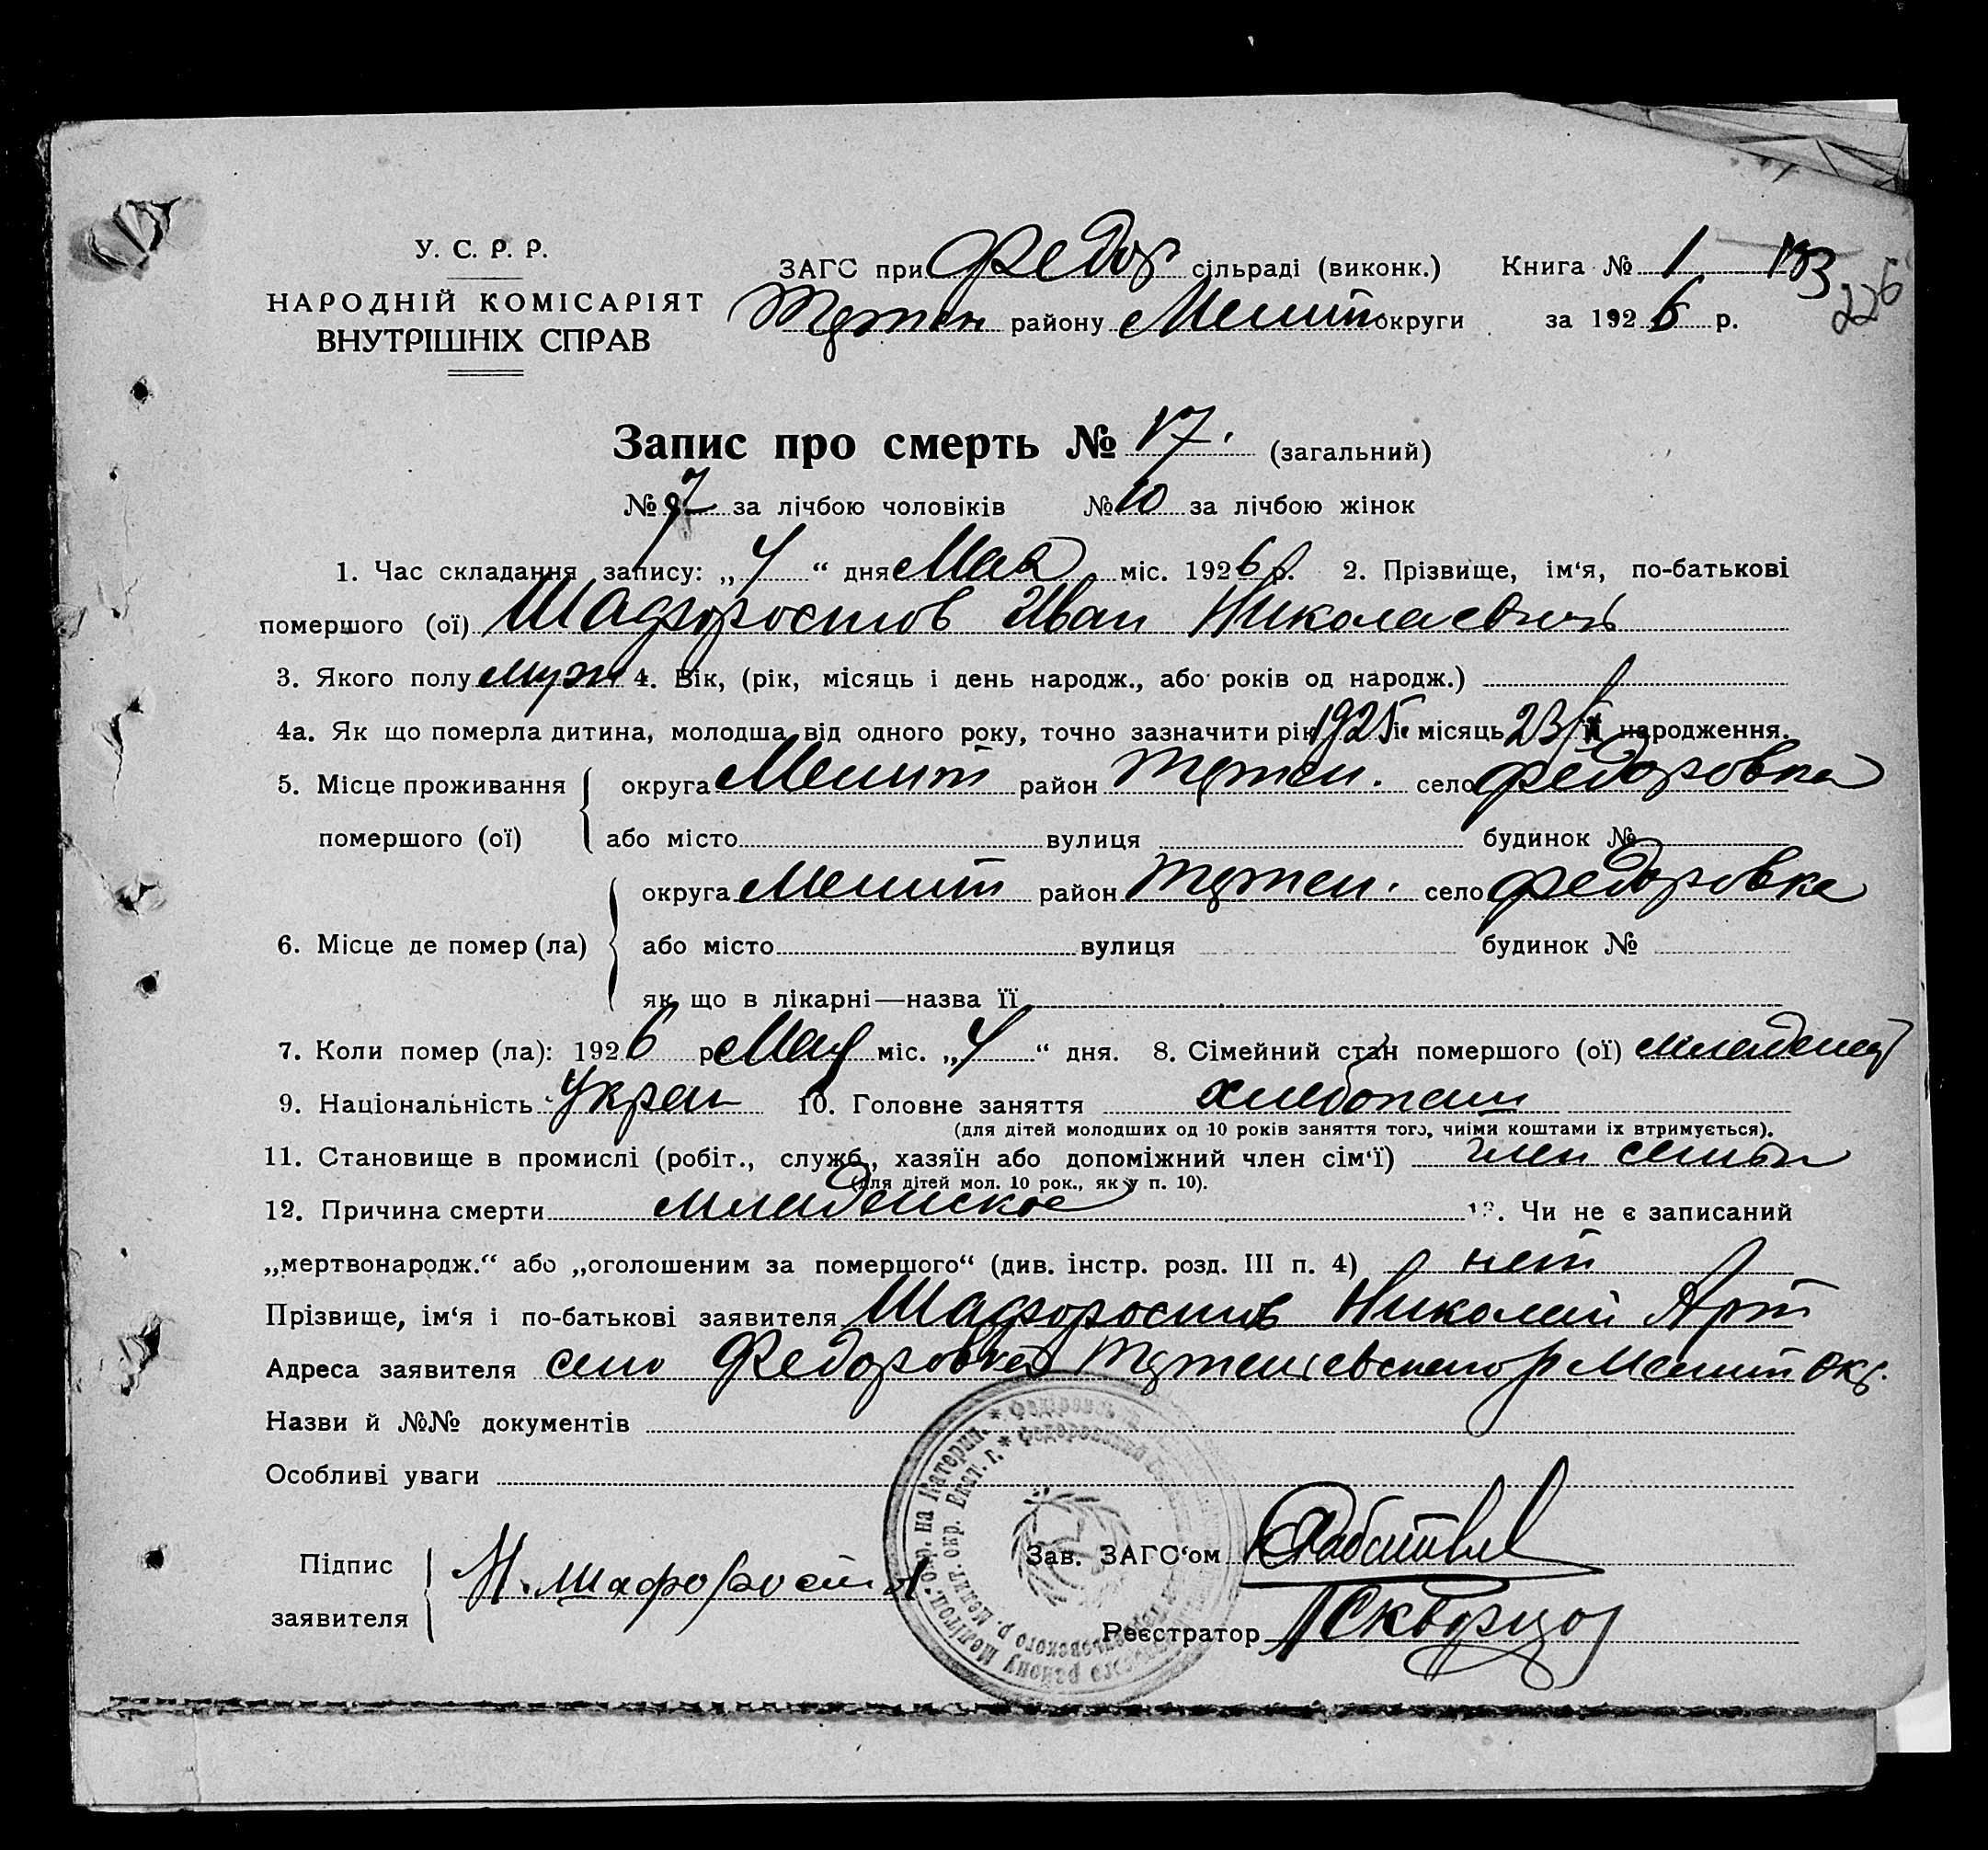 У. С. Р. Р.
НАРОДНІЙ КОМІСАРІЯТ
ВНУТРІШНІХ СПРАВ
ЗАГС при Федор сільраді (виконк.) Книга № 1 183
226
району Мелит округи за 1926 р.
Запис про смерть № 17. (загальний)
№ 7 за лічбою чоловіків № 10 за лічбою жінок
1. Час складання запису: „4“ дня Мая міс. 1926 р. 2. Прізвище, ім‘я, по-батькові
помершого (ої) Шафоростов Иван Николаевичь
3. Якого полу муж 4. Вік, (рік, місяць і день народж., або років од народж.)
4а. Як що померла дитина, молодша від одного року, точно зазначити рік 1925 місяць 23/ народження.
5. Місце проживання округа Мелит район село Федоровка
помершого (ої) або місто вулиця будинок №
округа Мелит район село Федоровка
6. Місце де помер (ла) або місто вулиця будинок №
як що в лікарні—назва її
7. Коли помер (ла): 1926 р Мая міс. „4“ дня. 8. Сімейний стан помершого (ої) младенец
9. Національність Украи 10. Головне заняття хлебопаш
(для дітей молодших од 10 років заняття того, чиїми коштами їх втримується).
11. Становище в промислі (робіт., служб., хазяїн або допоміжний член сім‘ї) член семьи
(для дітей мол. 10 рок., як у п. 10).
12. Причина смерти младенское 13. Чи не є записаний
„мертвонародж.“ або „оголошеним за помершого“ (див. інстр. розд. III п. 4) нет
Прізвище, ім‘я і по-батькові заявителя Шафоростов Николай Арт
Адреса заявителя село Федоровка р Мелит окр.
Назви й №№ документів
Особливі уваги
Підпис
заявителя
Н. Шафорост
Зав. ЗАГС‘ом
Реєстратор Скворцов